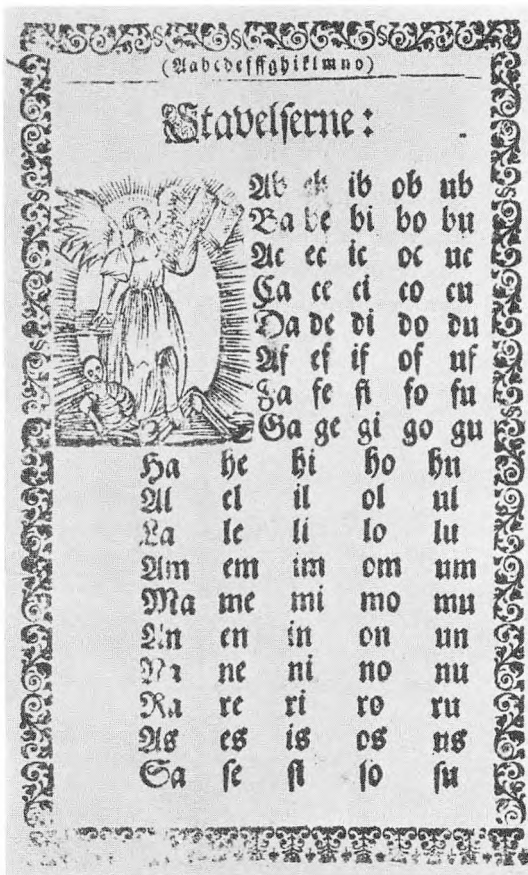 (Aabcdefffghiklmno)
Stavelſerne:
Ab eb ib ob ub
Ba be bi bo bu
Ac ec ic oc uc
Ca ce ci co cu
Da de di do du
Af ef if of uf
Fa fe fi fo fu
Ga ge gi go gu
Ha he hi ho hu
Al el il ol ul
La le li lo lu
Am em im om um
Ma me mi mo mu
An en in on un
Na ne ni no nu
Ra re ri ro ru
As es is os us
Sa ſe ſi ſo ſu